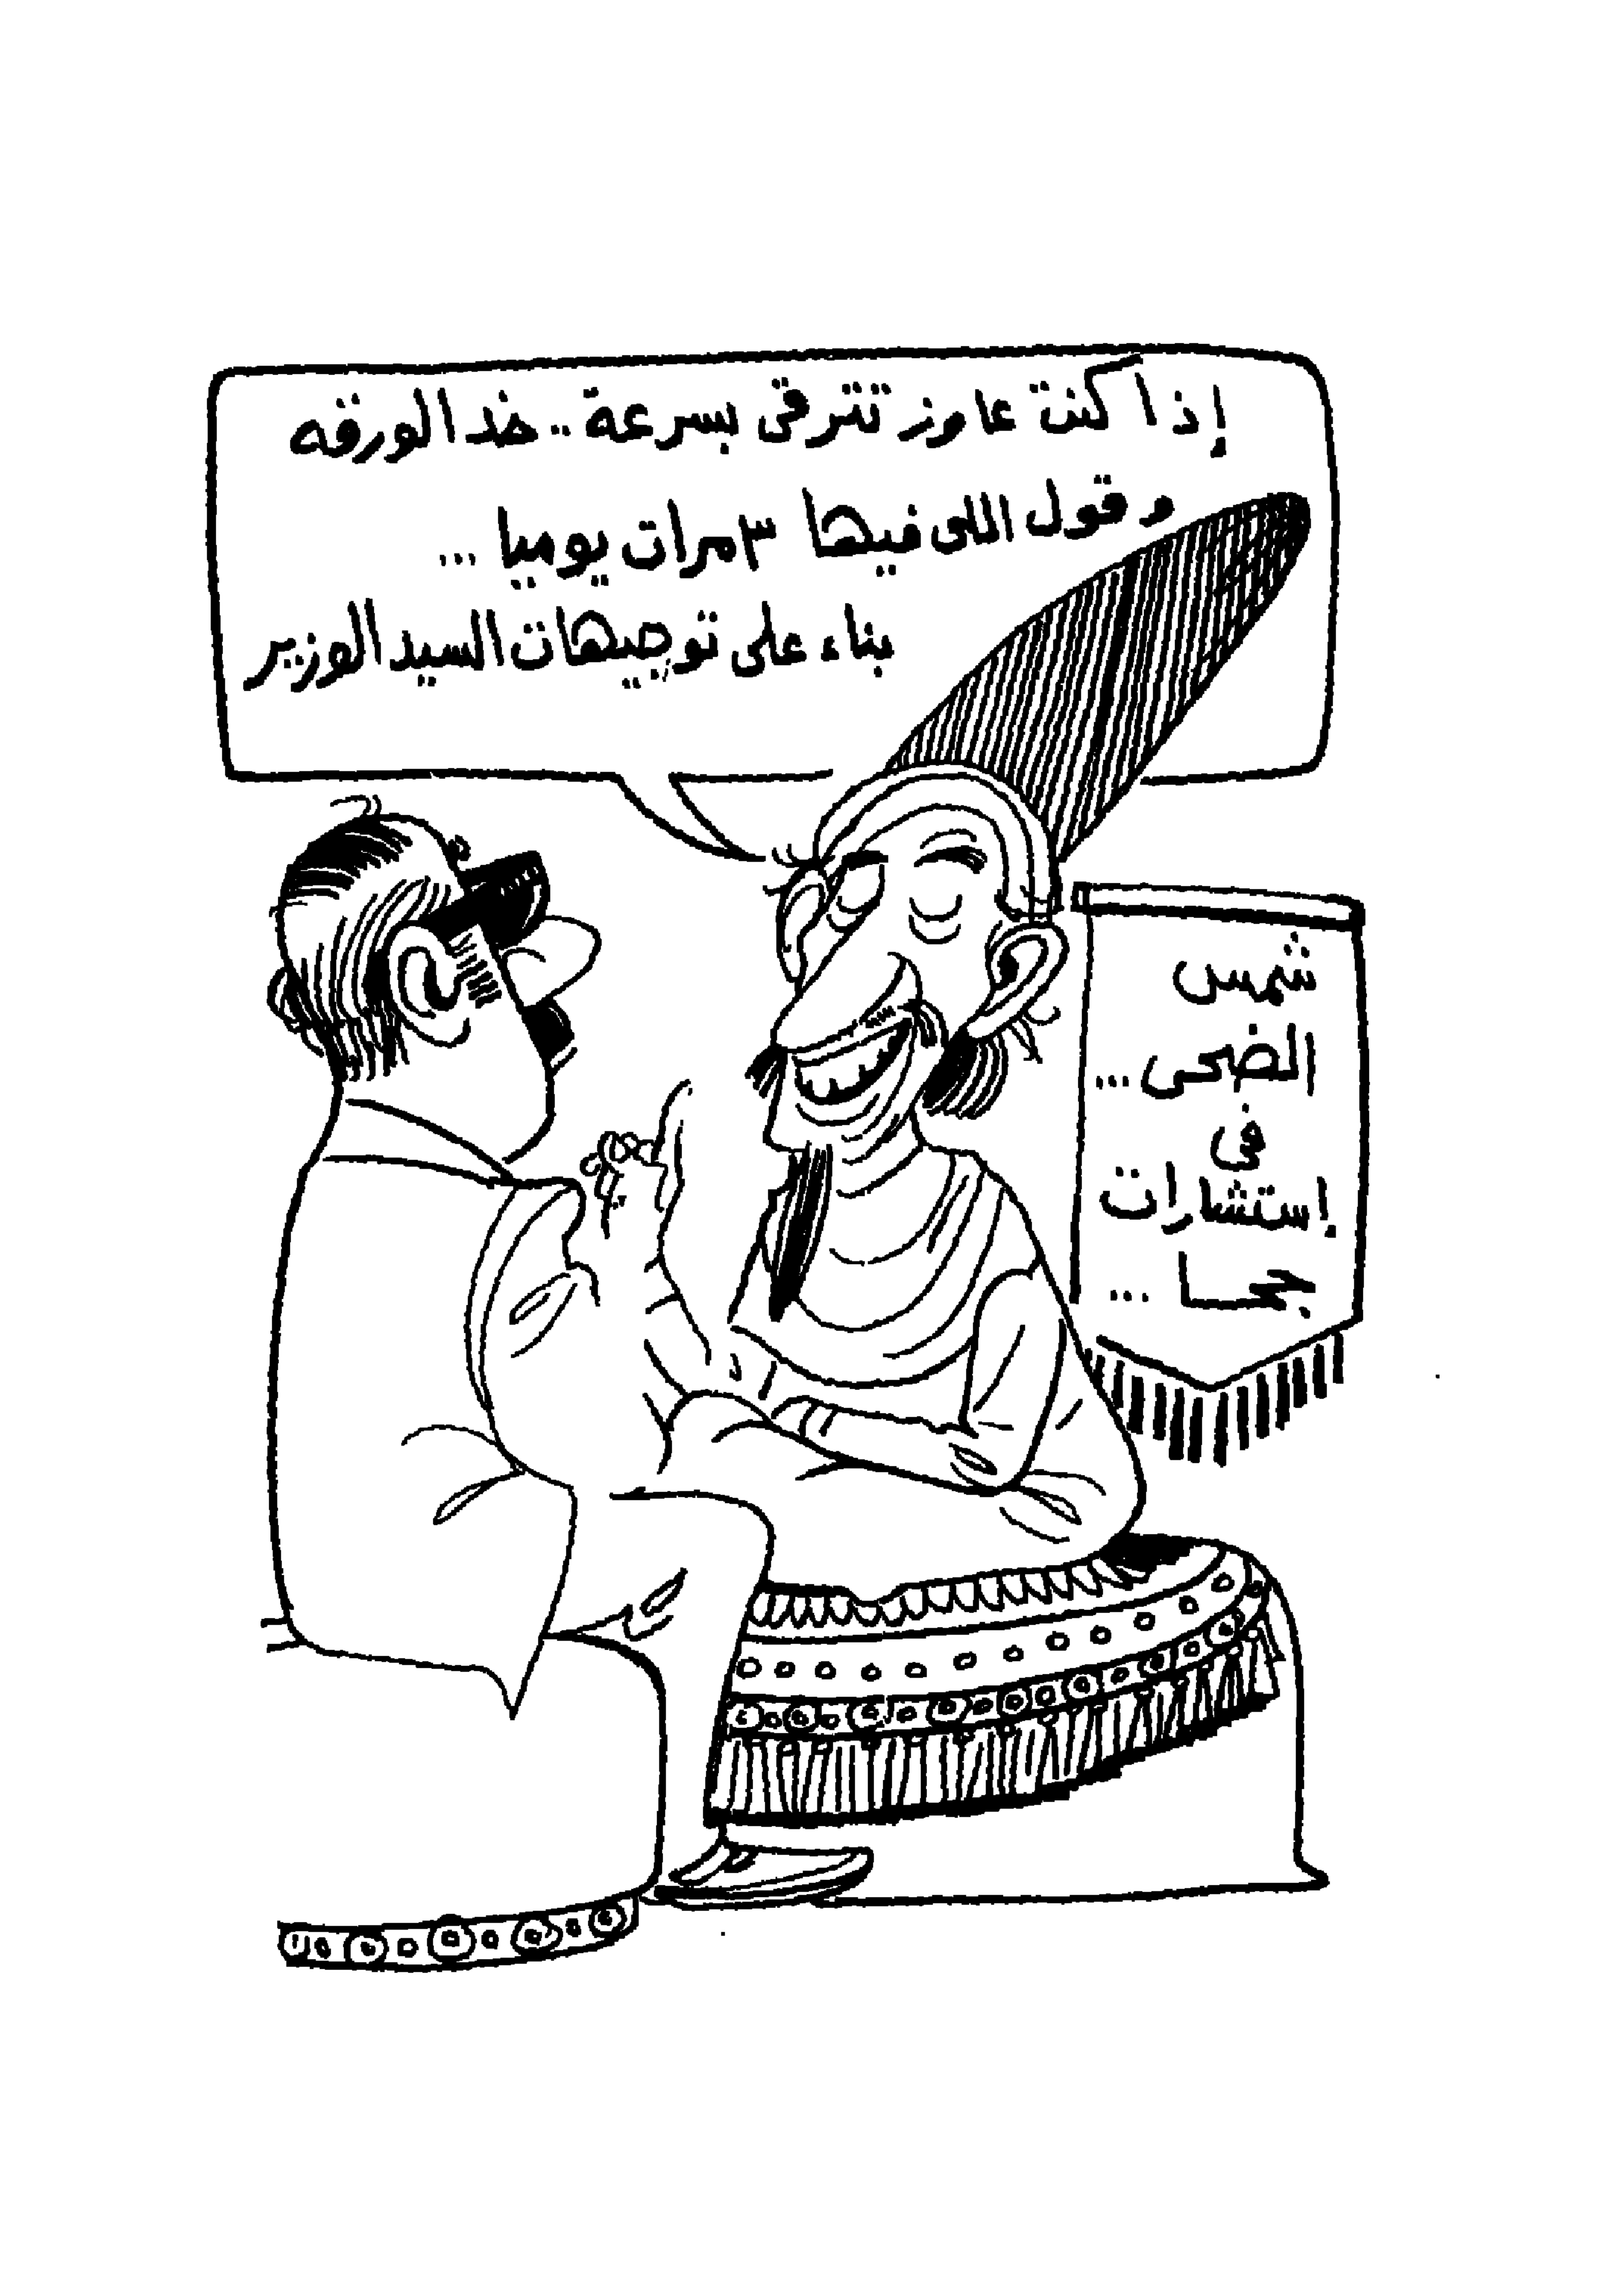 إذا كنت عاوز تترقى بسرعة .. خد الورقه
وقول اللى فيها ٣ مرات يوميا ...
بناء على توجيهات السيد الوزير
شمس
الضحى ...
في
إستشارات
جحا ...